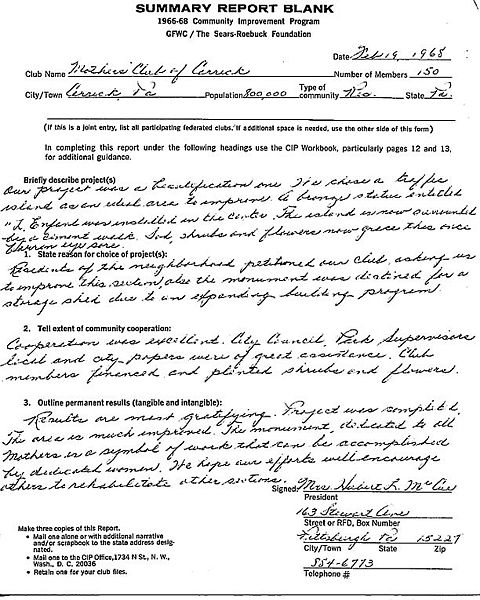 SUMMARY REPORT BLANK
1966-68 Community Improvement Program
GFWC / The Sears-Roebuck Foundation
Date Feb 19, 1968
Club Name Mothers' Club of Carrick Number of Members 150
City/Town Carrick, Pa Population 800,000 Type of community Res. State Pa.
(If this is a joint entry, list all participating federated clubs. If additional space is needed, use the other side of this form)
In completing this report under the following headings use the CIP Workbook, particularly pages 12 and 13,
for additional guidance.
Briefly describe project(s)
Our project was a beautification one. We chose a traffic
island as an ideal area to improve. A bronze statue entitled
"L. Enfant was installed in the center. The island is now surrounded
by a cement walk. Sod, shrubs and flowers now grace this once
barren eye sore.
1. State reason for choice of project(s):
Residents of the neighborhood petitioned our Club, asking us
to improve this section, also the monument was destined for a
storage shed due to an expanding building program.
2. Tell extent of community cooperation:
Cooperation was excellent. City Council, Park Supervisors
local and city papers were of great assistance. Club
members financed and planted shrubs and flowers.
3. Outline permanent results (tangible and intangible):
Results are most gratifying. Project was completed,
The area is much improved. The monument, dedicated to all
Mothers is a symbol of work that can be accomplished
by dedicated women. We hope our efforts will encourage
others to rehabilitate other sections.
Signed Mrs. Hubert L. McCue
President
163 Stewart Ave
Street or RFD, Box Number
Pittsburgh Pa 15227
City/Town State Zip
884-6773
Telephone #
Make three copies of this Report.
• Mail one alone or with additional narrative
and/or scrapbook to the state address desig-
nated.
• Mail one to the CIP Office, 1734 N St., N. W.,
Wash., D. C. 20036
• Retain one for your club files.